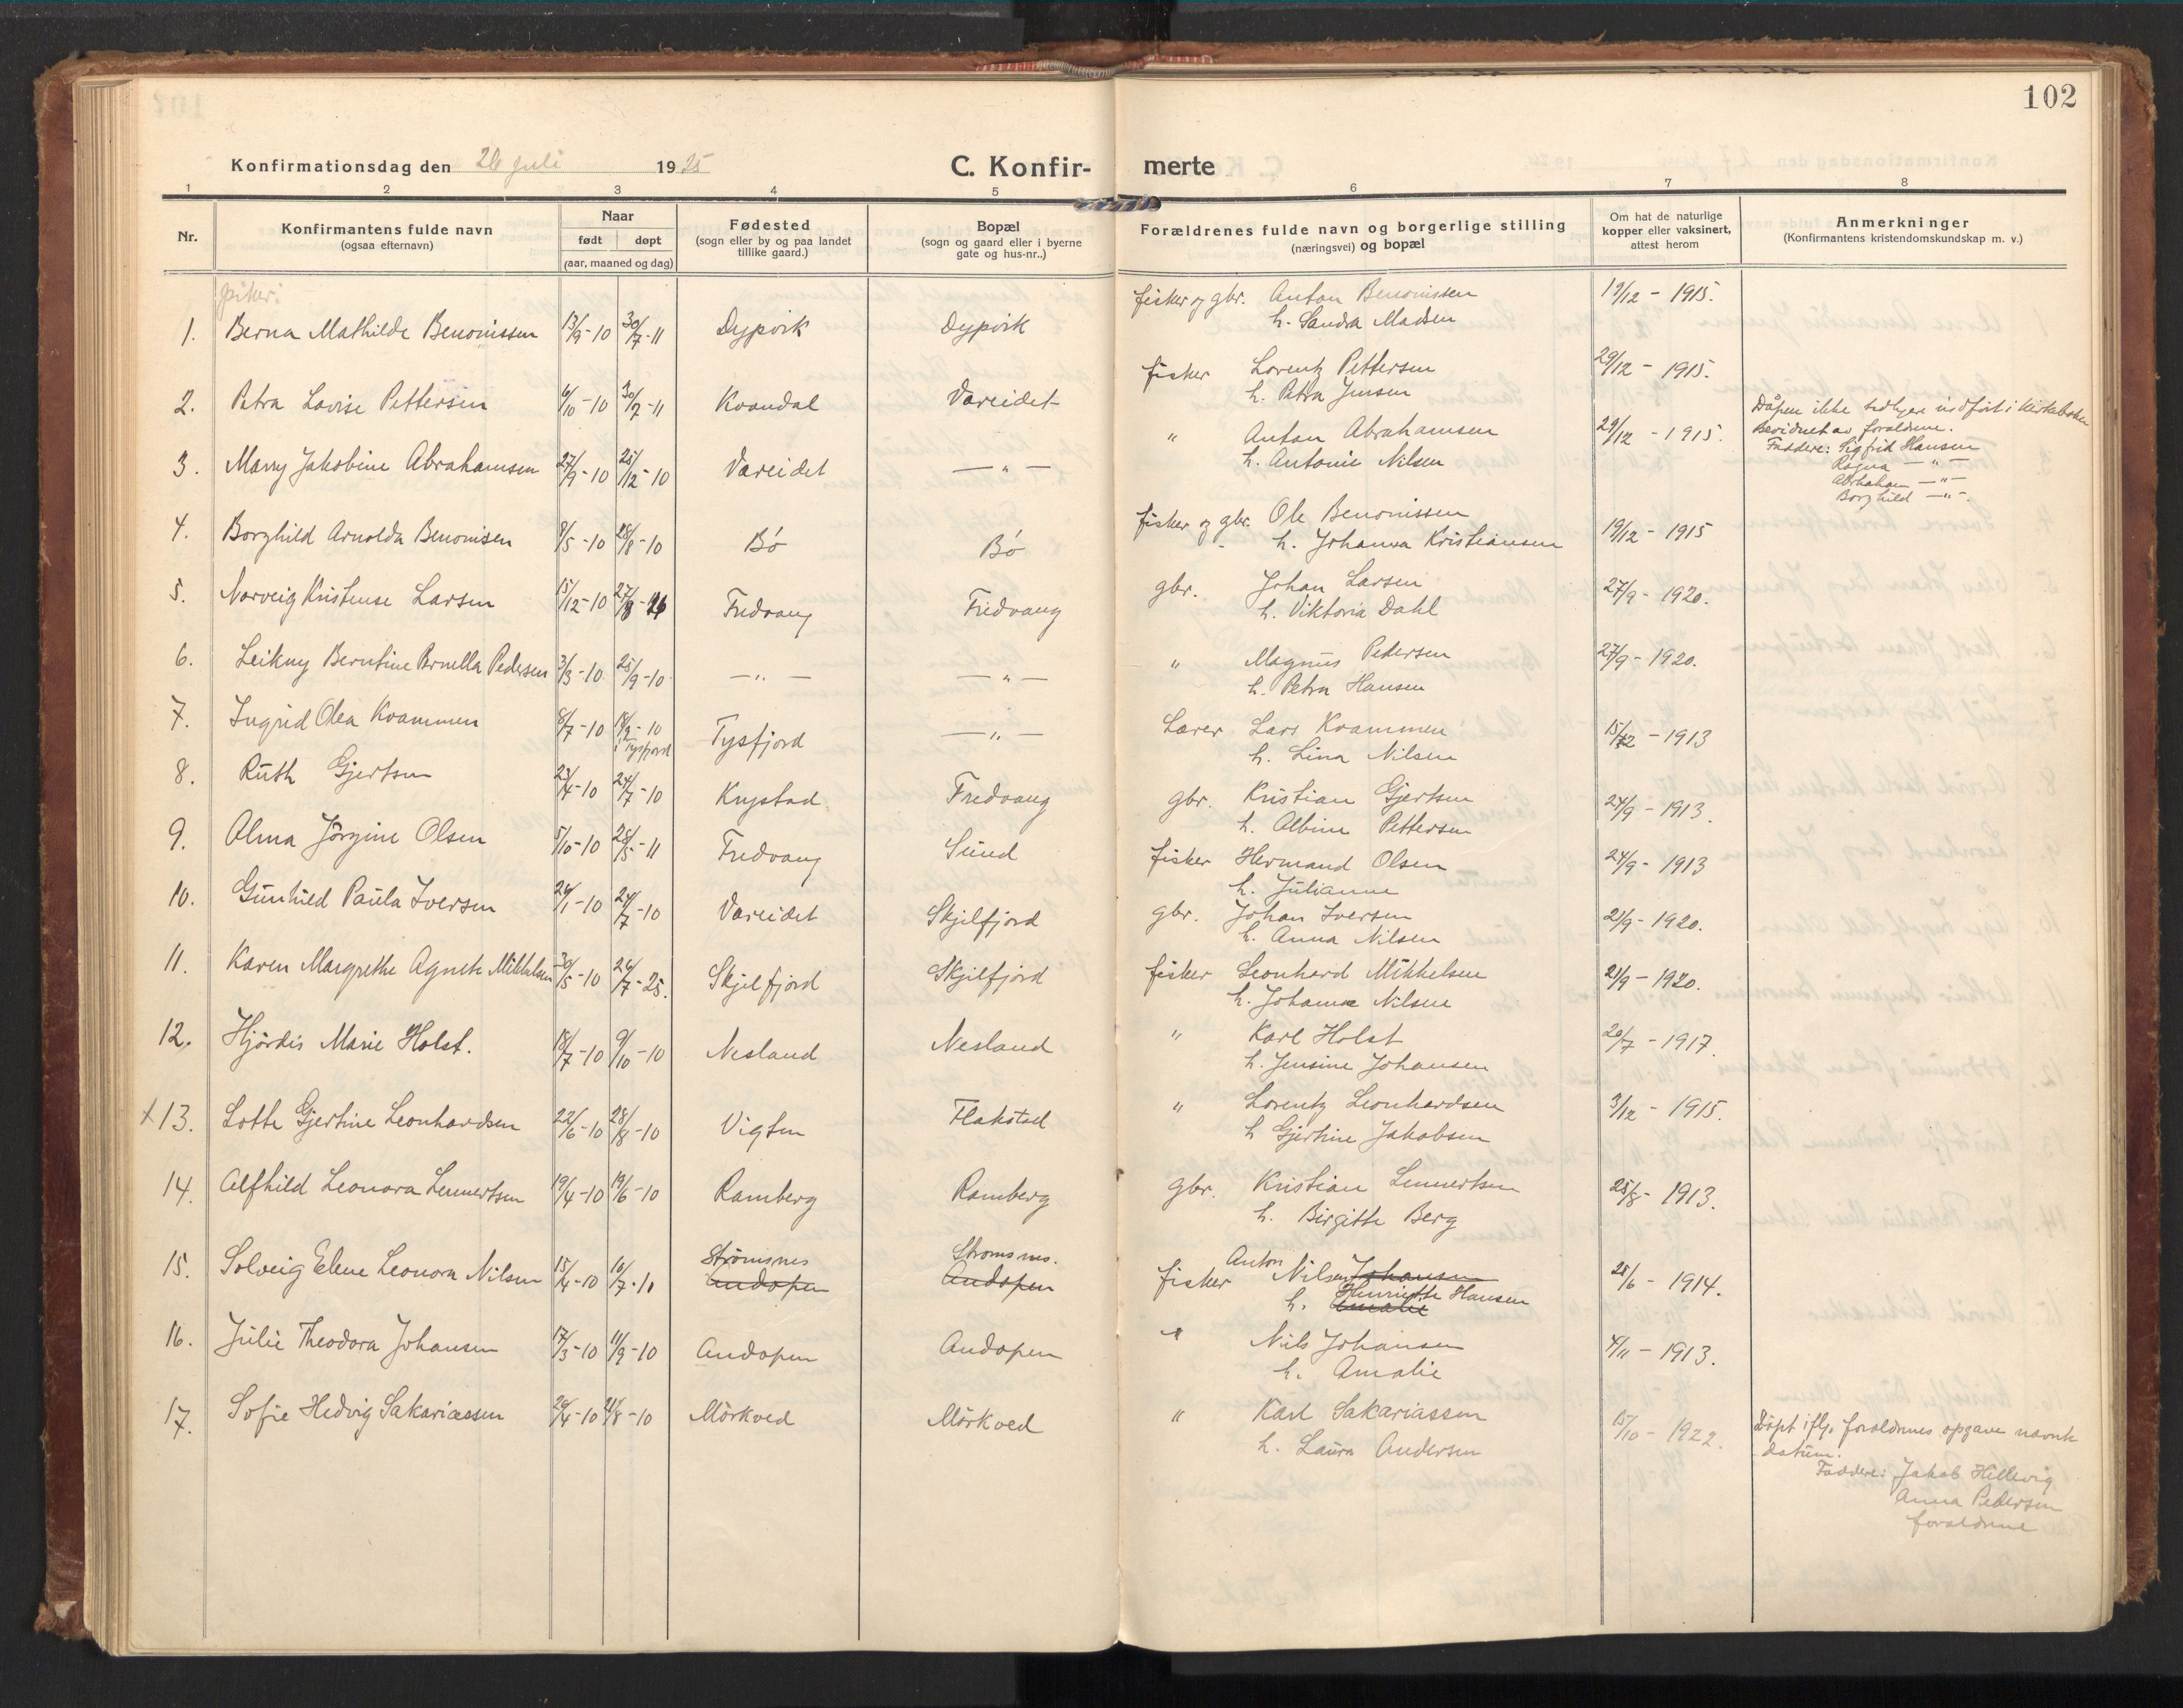 102
Konfirmationsdag den 26 juli 1925
C. Konfir-merte
1 2 3 4 5 6 7 8
Nr.
Konfirmantens fulde navn
(ogsaa efternavn)
Naar
født døpt
(aar, maaned og dag)
Fødested
(sogn eller by og paa landet
tillike gaard.)
Bopæl
(sogn og gaard eller i byerne
gate og hus-nr..)
Forældrenes fulde navn og borgerlige stilling
(næringsvei) og bopæl
Om hat de naturlige
kopper eller vaksinert,
attest herom
Anmerkninger
(Konfirmantens kristendomskundskap m. v.)
piker:
1. Berna Mathilde Benonissen 13/9-10 30/7-11 Dypvik Dypvik fisker og gbr. Anton Benonissen 19/12 - 1915.
h. Sandra Madsen
2. Petra Lovise Pettersen 6/10-10 30/7-11 Kvandal Vareidet fisker Lorentz Pettersen 29/12 - 1915.
h. Petra Jensen
3. Marry Jakobine Abrahamsen 27/9-10 25/12-10 Vareidet — " — " Anton Abrahamsen 29/12 - 1915.
h. Antonie Nilsen
Dåpen ikke tidligere indført i kirkeboken
Bevidnet av foraldrene.
Faddere: Sigfrid Hansen
Ragna — " —
Abrhaham — " —
Borghild — " —
4. Borghild Arnolda Benonisen 8/5-10 28/8-10 Bö Bö fisker og gbr. Ole Benonissen 19/12 - 1915
h. Johanna Kristiansen
5. Norveig Kristense Larsen 15/12-10 27/8- Fredvang Fredvang gbr. Johan Larsen 27/9 - 1920.
h. Viktoria Dahl
6. Leikny Berntine Pedersen 3/3-10 25/9-10 — " — — " — " Magnus Pedersen 27/9 - 1920.
h. Petra Hansen
7. Ingrid Olea Kvammen 8/7-10 18/9-10 Tysfjord — " — Lærer Lars Kvammen 15/12 - 1913
i Tysfjord
h. Lina Nilsen
8. Ruth Gjertsen 23/4-10 24/7-10 Krystad Fredvang gbr. Kristian Gjertsen 24/9 - 1913.
h. Albine Pettersen
9. Alma Jörgine Olsen 5/10-10 28/5-11 Fredvang Sund fisker Hermand Olsen 24/9 - 1913
h. Julianne
10. Gunhild Paula Iversen 26/1-10 24/7-10 Vareidet Skjelfjord gbr. Johan Iversen 21/9 - 1920.
h. Anna Nilsen
11. Karen Margrethe Agnete Mikkelsen 30/5-10 26/7-25. Skjelfjord Skjelfjord fisker Leonhard Mikkelsen 21/9 - 1920.
h. Johanna Nilsen
12. Hjördis Marie Holst. 18/7-10 9/10-10 Nesland Nesland " Karl Holst 20/7 - 1917.
h. Jensine Johansen
x 13. Lotte Gjertine Leonhardsen 22/6-10 28/8-10 Vigten Flakstad " Lorentz Leonhardsen 3/12 - 1915.
h Gjertine Jakobsen
14. Alfhild Leonora Lennertsen 19/4-10 19/6-10 Ramberg Ramberg gbr. Kristian Lennertsen 25/8 - 1913.
h. Birgitte Berg
15. Solveig Elene Leonora Nilsen 15/4-10 10/7-10 Strömsnes Andopen Stromsnes. Andopen fisker Anton Nilsen Johansen 25/6 - 1914.
h. Amalie Henriette Hansen
16. Julie Theodora Johansen 17/3-10 11/9-10 Andopen Andopen " Nils Johansen 4/11 - 1913.
h. Amalie
17. Sofie Hedvig Sakariassen 20/4-10 21/8-10 Mörkved Mörkved " Karl Sakariassen 15/10 - 1922.
h. Laura Andersen
Döpt iflg. foraldrenes opgave navnte
datum.
Faddere: Jakob Hellevig
Anna Pedersen
foraldrene